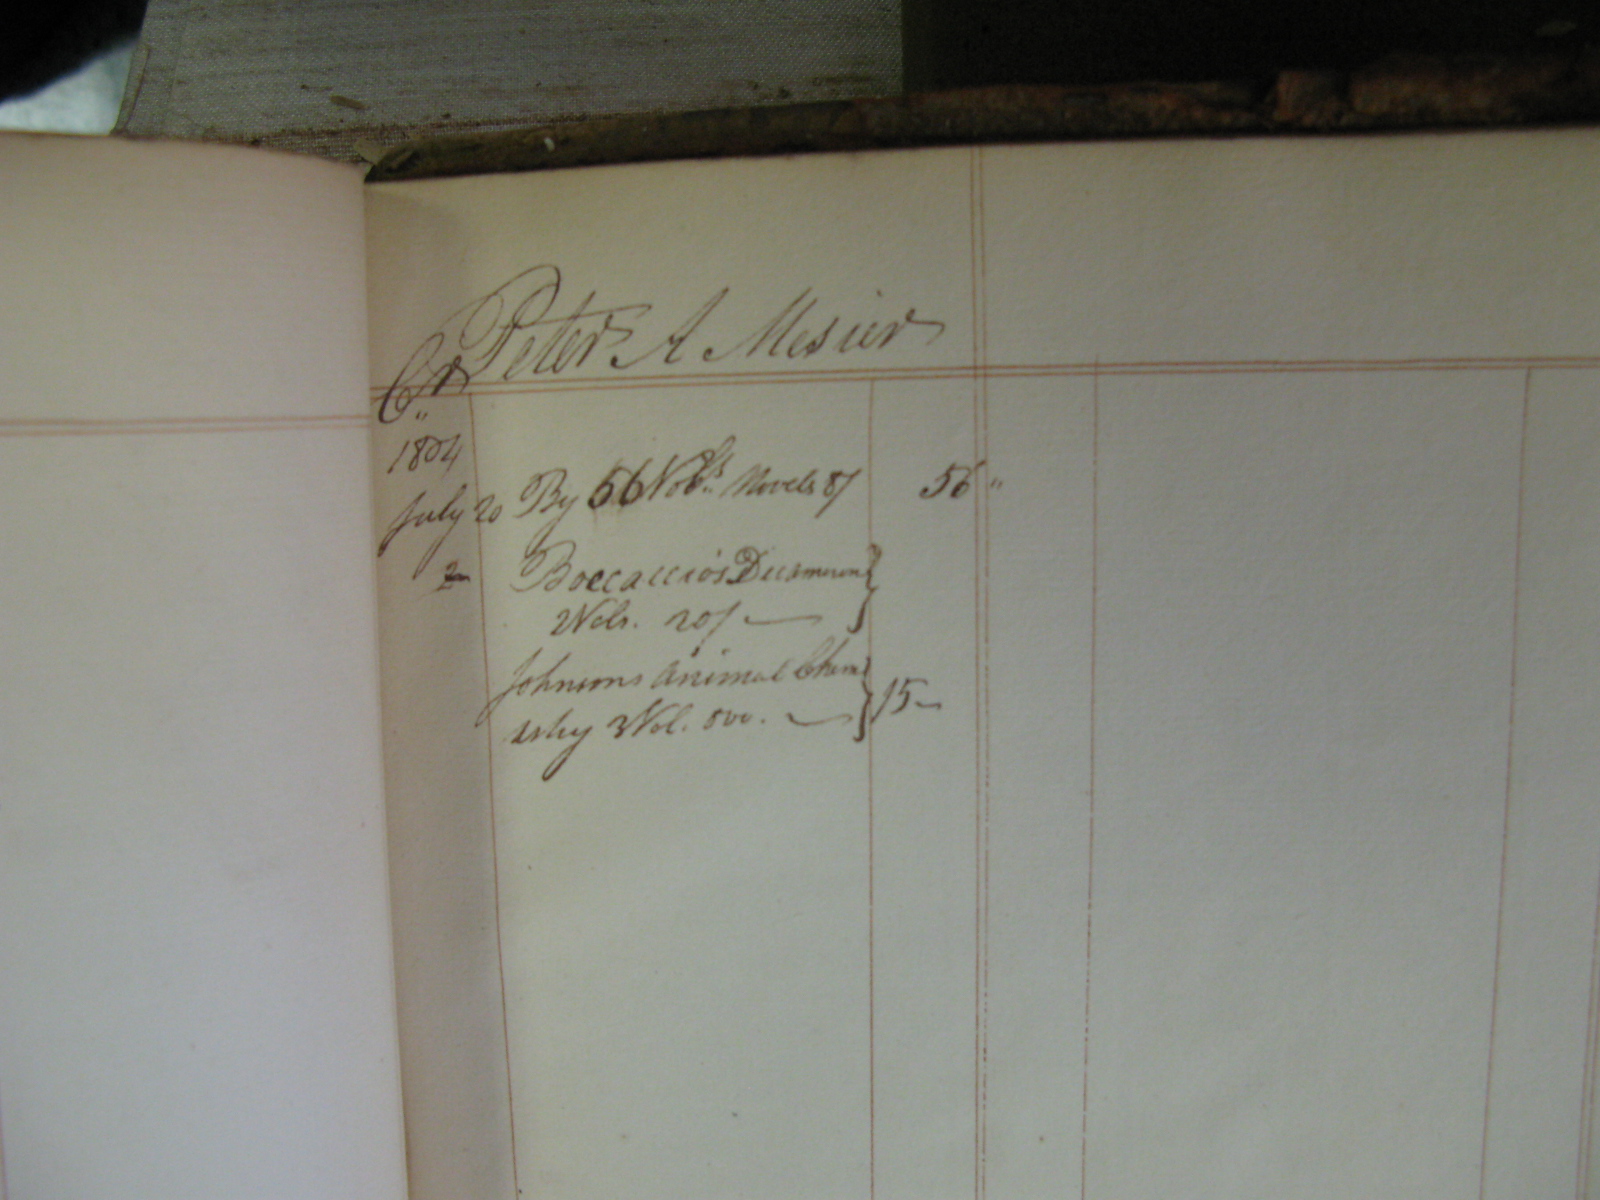 Peter A Mesier
Cr
1804
July 20 By 56 Vols. Novels 8/ 56 "
2 Boccaccio's Decameron
2 Vols. 20/ —
Johnsons Animal Chem
istry 3 Vol. 8vo. — 15 —